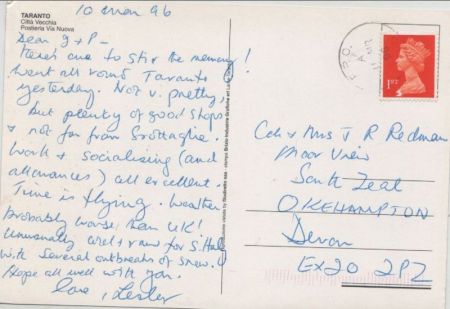 10 Mar 96
TARANTO
Città Vecchia
Postierla Via Nuova
Dear J+P-
Here's one to stir the memory!
Went all round Taranto
yesterday. Not v. pretty,
but plenty of good shops
+ not far from Grottaglie.
Work + socialising (and
allowances) all excellent.
Time is flying. Weather
probably worse than UK!
Unusually wet + raw for S. Italy
with several outbreaks of snow.
Hope all well with you.
Love, Lester
1ST
Col + Mrs J R Redman
Moor View
South Zeal
OKEHAMPTON
Devon
EX20 2PZ